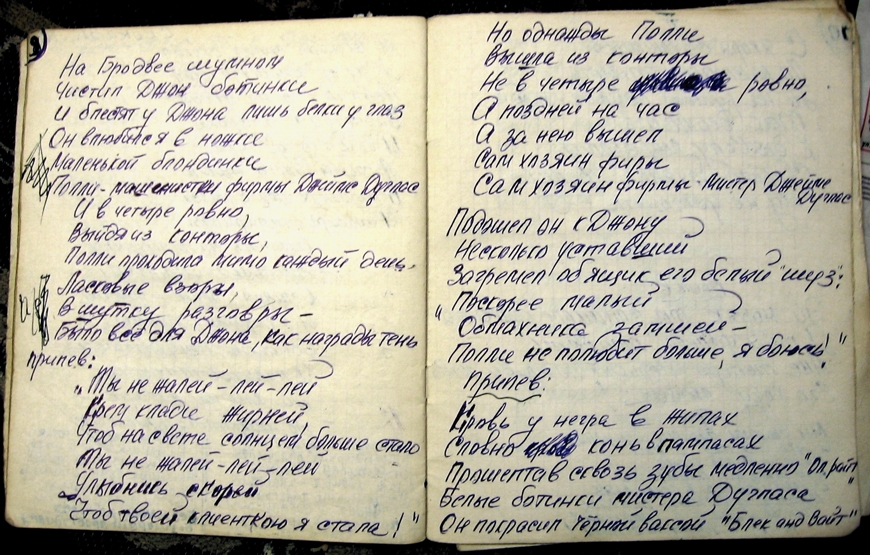 На Бродвее шумном
Чистил Джон ботинки
И блестят у Джона лишь белки у глаз
Он влюбился в ножки
Маленькой блондинки
Полли - машинистки фирмы Джеймс Дуглас
И в четыре ровно,
Выйдя из конторы,
Полли проходила мимо каждый день.
Ласковые взоры,
В шутку разговры -
Было всё для Джона, как награды тень
припев:
"Ты не жалей-лей-лей
Крем клади жирней,
Чтоб на свете солнцем больше стало
Ты не жалей-лей-лей
Улыбнись скорей
Чтоб твоей клиенткою я стала!"
Но однажды Полли
Вышла из конторы
Не в четыре ровно,
А поздней на час
А за нею вышел
Сам хозяин фиры
Сам хозяин фирмы - мистер Джеймс
Дуглас
Подошел он к Джону
Несколько уставший
Загремел об ящик его белый "шуз":
"Поскорее малый
Обмахни-ка запшей -
Полли не полюбит больше, я боюсь!"
припев:
Кровь у негра в жилах
Словно конь в пампасах
Прошептав сквозь зубы медленно "Ол райт"
Белые ботинки мистера Дугласа
Он покрасил чёрной ваксой "Блек анд Вайт"